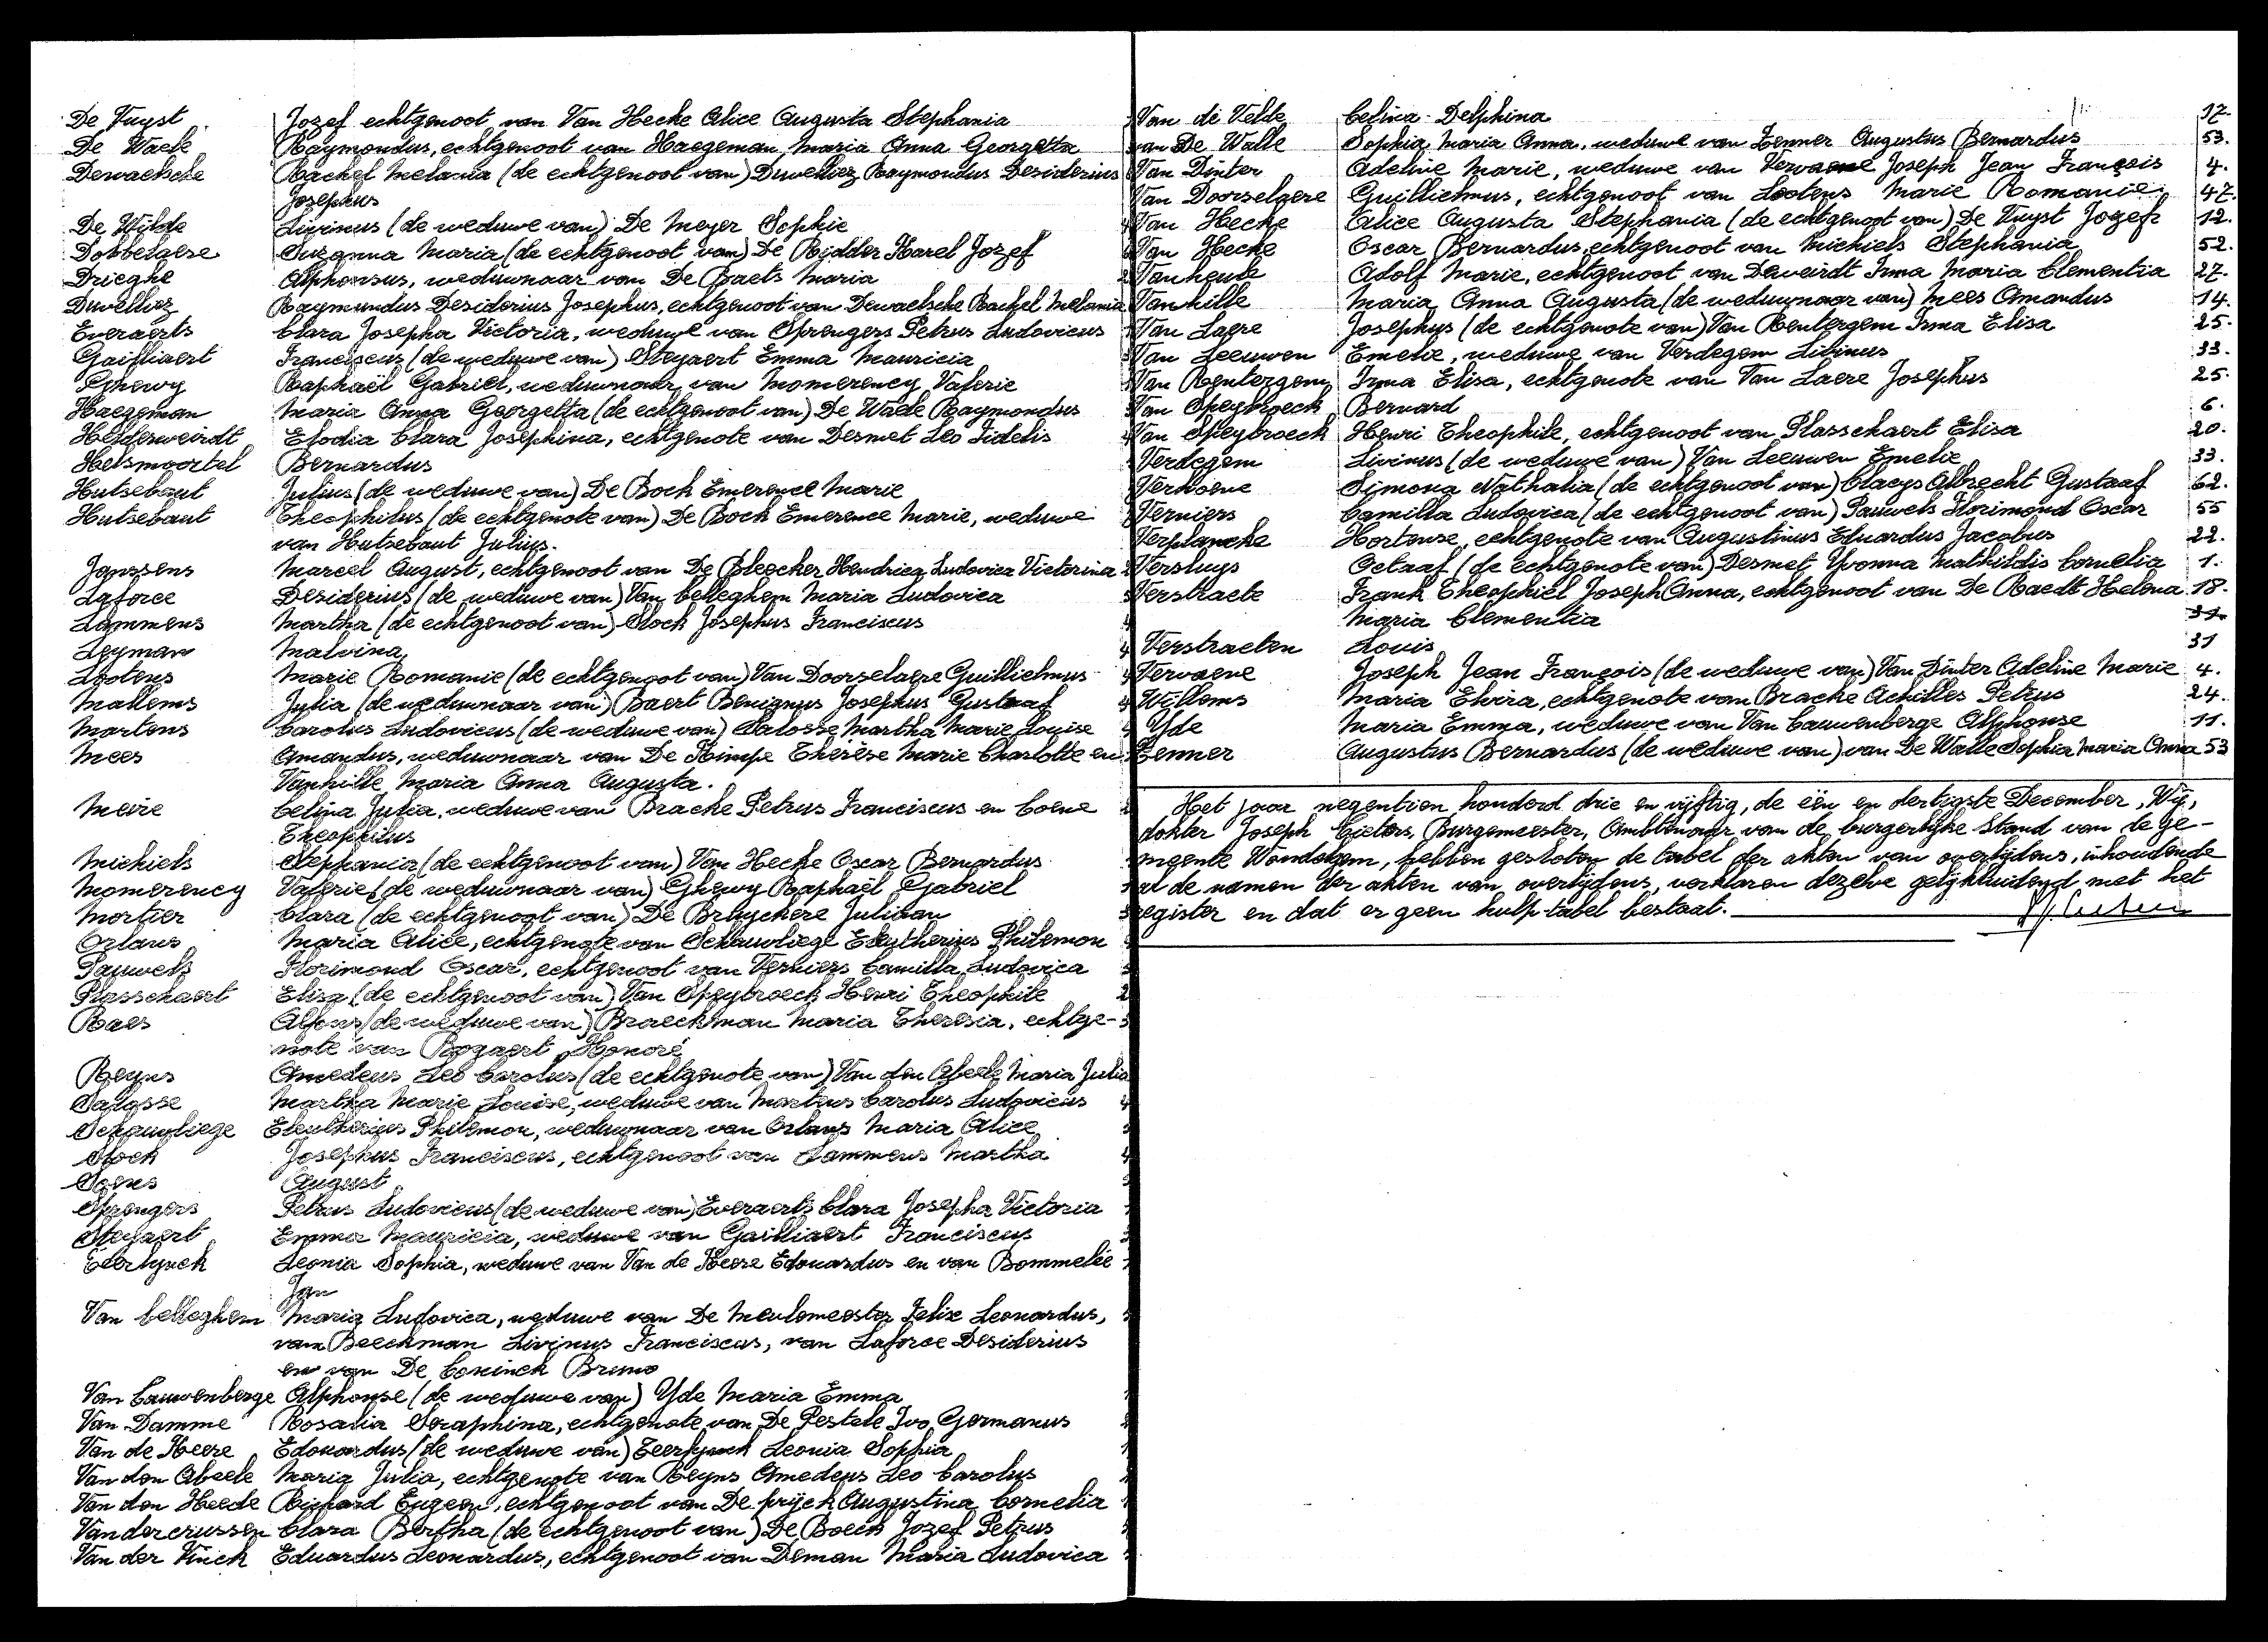 De Vuyst Jozef echtgenoot van Van Hecke Alice Augusta Stephania
De Waele Raymondus, echtgenoot van Haegeman Maria Anna Georgetta
Dewaelsche Rachel Melania (de echtgenoot van) Duvelliez Raymondus Desiderius
Josephus
De Wilde Livinus (de weduwe van) De Meyer Sophie
Dobbelaere Suzanna Maria (de echtgenoot van) De Ridder Karel Jozef
Drieghe Alphonsus, weduwnaar van De Baets Maria
Duvelliez Raymundus Desiderius Josephus, echtgenoot van Dewaelsche Rachel Melania
Everaerts Clara Josepha Victoria, weduwe van Sprengers Petrus Ludovicus
Gailliaert Franciscus (de weduwe van) Steyaert Emma Mauricia
Ghewy Raphaël Gabriel, weduwnaar van Momerency Valerie
Haegeman Maria Anna Georgetta (de echtgenoot van) De Waele Raymondus
Helderweirdt Elodia Clara Josephina, echtgenote van Desmet Leo Fidelis
Helsmoortel Bernardus
Hutsebaut Julius (de weduwe van) De Bock Emerence Marie
Hutsebaut Theophilus (de echtgenote van) De Bock Emerence Marie, weduwe
van Hutsebaut Julius.
Janssens Marcel August, echtgenoot van De Bleecker Hendrica Ludovica Victorina
Laforce Desiderius (de weduwe van) Van Celleghem Maria Ludovica
Lammens Martha (de echtgenoot van) Slock Josephus Franciscus
Leyman Malvina
Lootens Marie Romanie (de echtgenoot van) Van Doorselaere Guilliclmus
Mallems Julia (de weduwnaar van) Baert Benignus Josephus Gustaaf
Martens Carolus Ludovicus (de weduwe van) Salosse Martha Marie Louise
Mees Amandus, weduwnaar van De Kimpe Thérèse Marie Charlotte en
Vanhille Maria Anna Augusta.
Meire Celina Julia, weduwe van Bracke Petrus Franciscus en Coene
Theophilus
Michiels Stephania (de echtgenoot van) Van Hecke Oscar Bernardus
Momerency Valerie (de weduwnaar van) Ghewy Raphaël Gabriel
Mortier Clara (de echtgenoot van) De Bruyckere Juliaan
Orlans Maria Alice, echtgenote van Schauvliege Eleutherius Philemon
Pauwels Florimond Oscar, echtgenoot van Verniers Camilla Ludovica
Plasschaert Elisa (de echtgenoot van) Van Speybroeck Henri Theophile
Raes Alfons (de weduwe van) Braeckman Maria Theresia, echtge-
note van Bogaert Honoré
Reyns Amedeus Leo Carolus (de echtgenote van) Van den Abeele Maria Julia
Salosse Martha Marie Louise, weduwe van Martens Carolus Ludovicus
Schauvliege Eleutherius Philemon, weduwnaar van Orlans Maria Alice
Slock Josephus Franciscus, echtgenoot van Lammens Martha
Soens August
Sprengers Petrus Ludovicus (de weduwe van) Everaerts Clara Josepha Victoria
Steyaert Emma Mauricia, weduwe van Gailliaert Franciscus
Teerlynck Leonia Sophia, weduwe van Van de Keere Edouardus en van Bommelée
Jan
Van Celleghem Maria Ludovica, weduwe van De Meulemeester Felix Leonardus,
van Beeckman Livinus Franciscus, van Laforce Desiderius
en van De Coninck Bruno
Van Cauwenberge Alphonse (de weduwe van) Yde Maria Emma
Van Damme Rosalia Seraphina, echtgenote van De Pestele Ivo Germanus
Van de Keere Edouardus (de weduwe van) Teerlynck Leonia Sophia
Van den Abeele Maria Julia, echtgenote van Reyns Amedeus Leo Carolus
Van den Heede Richard Eugeen, echtgenoot van De prijck Augustina Cornelia
Vandercrussen Clara Bertha (de echtgenoot van) De Boeck Jozef Petrus
Van der Vinck Eduardus Leonardus, echtgenoot van Deman Maria Ludovica
Van de Velde Celina Delphina 17.
van De Walle Sophia Maria Anna, weduwe van Zenner Augustus Bernardus 53.
Van Dinter Adeline Marie, weduwe van Vervaene Joseph Jean François 4.
Van Doorselaere Guilliclmus, echtgenoot van Lootens Marie Romanie. 47.
Van Hecke Alice Augusta Stephania (de echtgenoot van) De Vuyst Jozef 12.
Van Hecke Oscar Bernardus, echtgenoot van Michiels Stephania 52.
Vanheule Adolf Marie, echtgenoot van Deweirdt Irma Maria Clementia 27.
Vanhille Maria Anna Augusta (de weduwnaar van) Mees Amandus 14.
Van Laere Josephus (de echtgenote van) Van Rentergem Irma Elisa 25.
Van Leeuwen Emelie, weduwe van Verdegem Livinus 33.
Van Rentergem Irma Elisa, echtgenote van Van Laere Josephus 25.
Van Speybroeck Bernard 6.
Van Speybroeck Henri Theophile, echtgenoot van Plasschaert Elisa 20.
Verdegem Livinus (de weduwe van) Van Leeuwen Emelie 33.
Verhoene Simona Nathalia (de echtgenoot van) Claeys Albrecht Gustaaf 62.
Verniers Camilla Ludovica (de echtgenoot van) Pauwels Florimond Oscar 55
Verplancke Hortense, echtgenote van Augustinus Eduardus Jacobus 22.
Versluys Octaaf (de echtgenote van) Desmet Yvonna Mathildis Cornelia 1.
Verstraete Frank Theophiel Joseph Anna, echtgenoot van De Raedt Helena 18.
Maria Clementia 31
Verstraeten Louis 31
Vervaene Joseph Jean François (de weduwe van) Van Dinter Adeline Marie 4.
Willems Maria Elvira, echtgenote van Bracke Achilles Petrus 24.
Yde Maria Emma, weduwe van Van Cauwenberge Alphonse 11.
Zenner Augustus Bernardus (de weduwe van) van De Walle Sophia Maria Anna 53
Het jaar negentien honderd drie en vijftig, de één en dertigste December, Wij,
dokter Joseph Gieters, Burgemeester, Ambtenaar van de burgerlijke Stand van de ge-
meente Wondelgem, hebben gesloten de tabel der akten van overlijdens, inhoudende
al de namen der akten van overlijdens, verklaren dezelve gelijkluidend met het
register en dat er geen hulp-tabel bestaat.